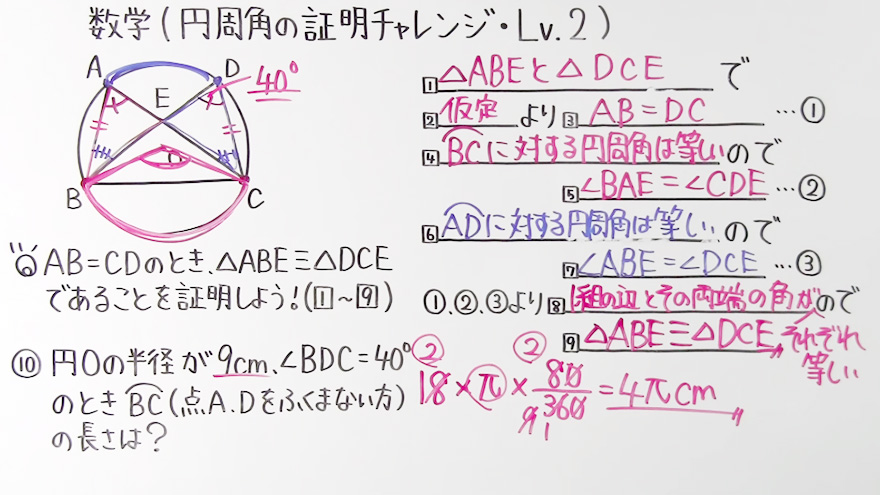 数学(円周角の証明チャレンジ・Lv.2)
A
D
40°
E
O
B
C
AB=CDのとき、△ABE≡△DCE
であることを証明しよう!(1~9)
⑩ 円Oの半径が9cm、∠BDC=40°
のとき BC(点A.Dをふくまない方)
の長さは?
1 △ABEと△DCE で
2 仮定 より 3 AB=DC …①
4 BCに対する円周角は等しいので
5 ∠BAE=∠CDE …②
6 ADに対する円周角は等しいので
7 ∠ABE=∠DCE …③
①、②、③より 8 1組の辺とその両端の角がので
それぞれ
等しい
9 △ABE≡△DCE
② ②
18×π×80/360=4πcm
9 1